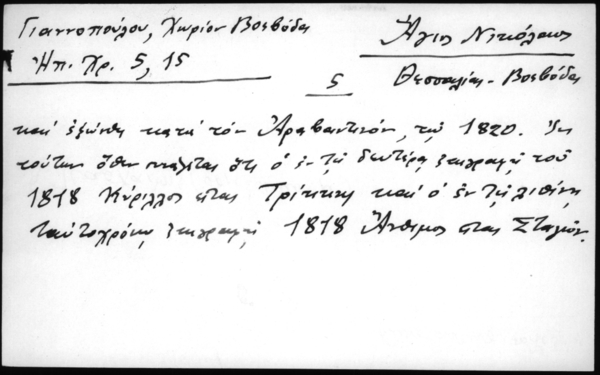 Γιαννοπούλου, Χωρίον Βοεβόδα
Ἠπ. Χρ. 5, 15
Ἅγιος Νικόλαος
Θεσσαλίας - Βοεβόδας
5
καὶ ἐξώσθη κατὰ τὸν Ἀραβαντινόν, τῷ 1820. Ἐκ
τούτων ὅθεν συνάγεται ὅτι ὁ ἐν τῇ δευτέρᾳ ἐπιγραφῇ τοῦ
1818 Κύριλλος εἶναι Τρίκκης καὶ ὁ ἐν τῇ λιθίνῃ
ταὐτοχρόνῳ ἐπιγραφῇ 1818 Ἄνθιμος εἶναι Σταγῶν.